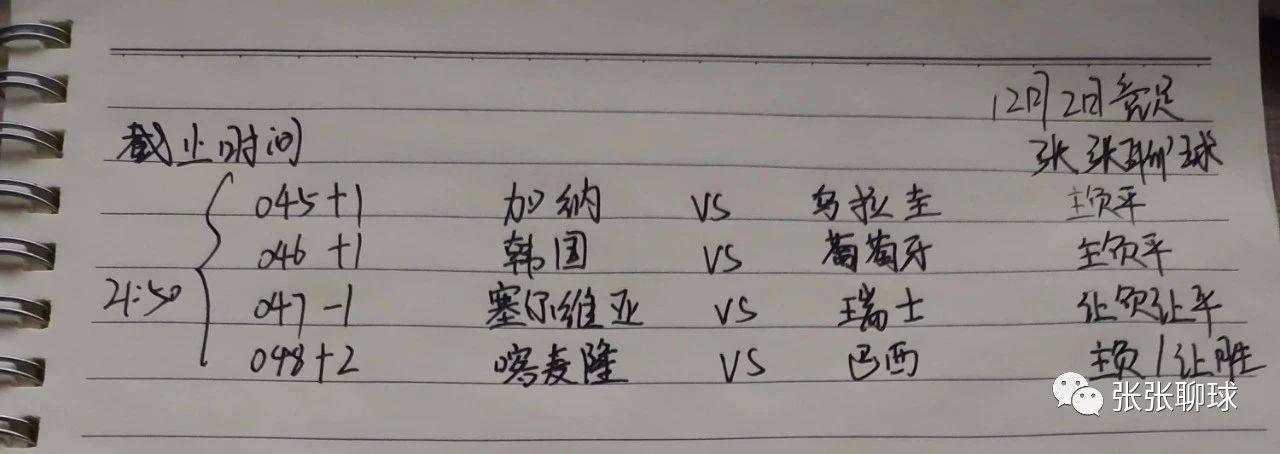 12月2日竞足
截止时间
张张聊球
045+1 加纳 VS 乌拉圭 主负平
046+1 韩国 VS 葡萄牙 主负平
21:50
047-1 塞尔维亚 VS 瑞士 让负让平
048+2 喀麦隆 VS 巴西 主负/让胜
张张聊球